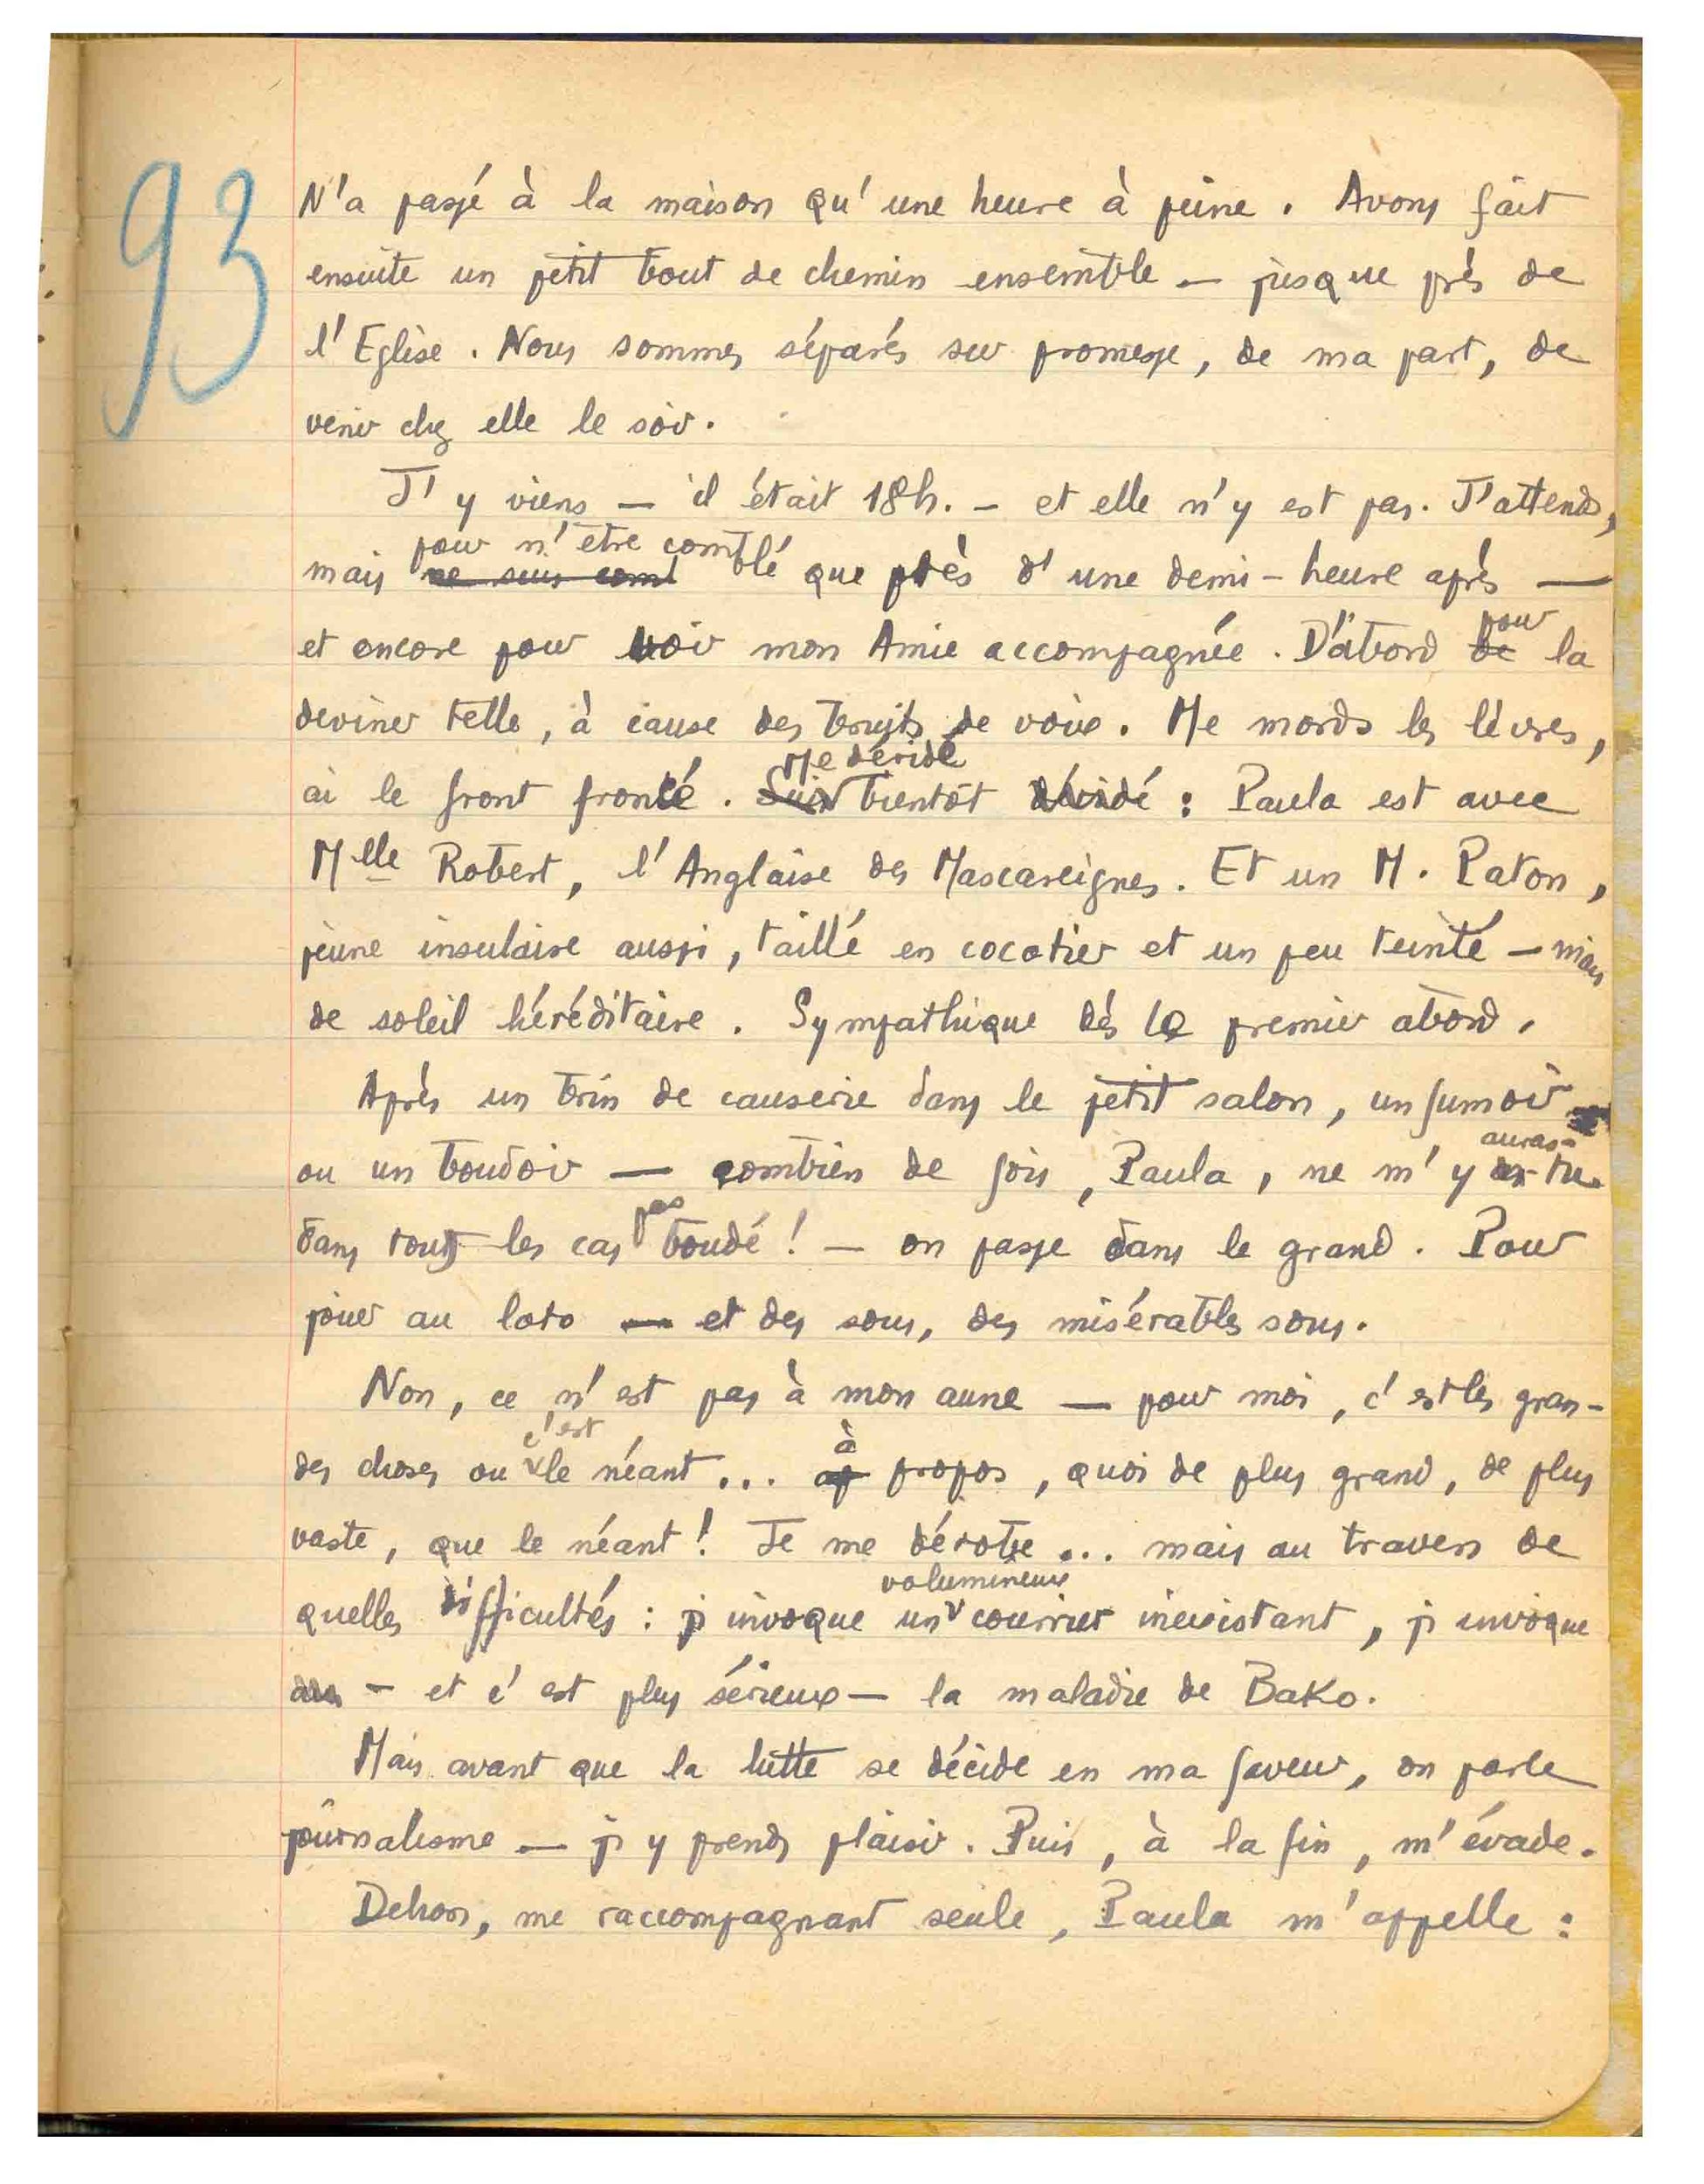 93
N'a passé à la maison qu'une heure à peine. Avons fait
ensuite un petit bout de chemin ensemble — jusque près de
l'Eglise. Nous sommes séparés sur promesse, de ma part, de
venir chez elle le soir.
J'y viens — il était 18h. — et elle n'y est pas. J'attends,
pour n'être com
mais ne suis com blé que près d'une demi-heure après —
pour
et encore pour voir mon Amie accompagnée. D'abord de la
deviner telle, à cause des bruits de voix. Me mords les lèvres,
Me déride
ai le front froncé. Suis bientôt déridé : Paula est avec
Mlle Robert, l'Anglaise des Mascareignes. Et un M. Paton,
jeune insulaire aussi, taillé en cocotier et un peu teinté — mais
de soleil héréditaire. Sympathique dès le premier abord.
Après un brin de causerie dans le petit salon, un fumoir
auras-
ou un boudoir — combien de fois, Paula, ne m'y as-tu
pas
dans tous les cas boudé ! — on passe dans le grand. Pour
jouer au loto — et des sous, des misérables sous.
Non, ce n'est pas à mon aune — pour moi, c'est les gran-
c'est à
des choses ou le néant... ap propos, quoi de plus grand, de plus
vaste, que le néant ! Je me dérobe... mais au travers de
volumineux
quelles difficultés : j'invoque un courrier inexistant, j'invoque
— et c'est plus sérieux — la maladie de Bako.
Mais avant que la lutte se décide en ma faveur, on parle
journalisme — j'y prends plaisir. Puis, à la fin, m'évade.
Dehors, me raccompagnant seule, Paula m'appelle :